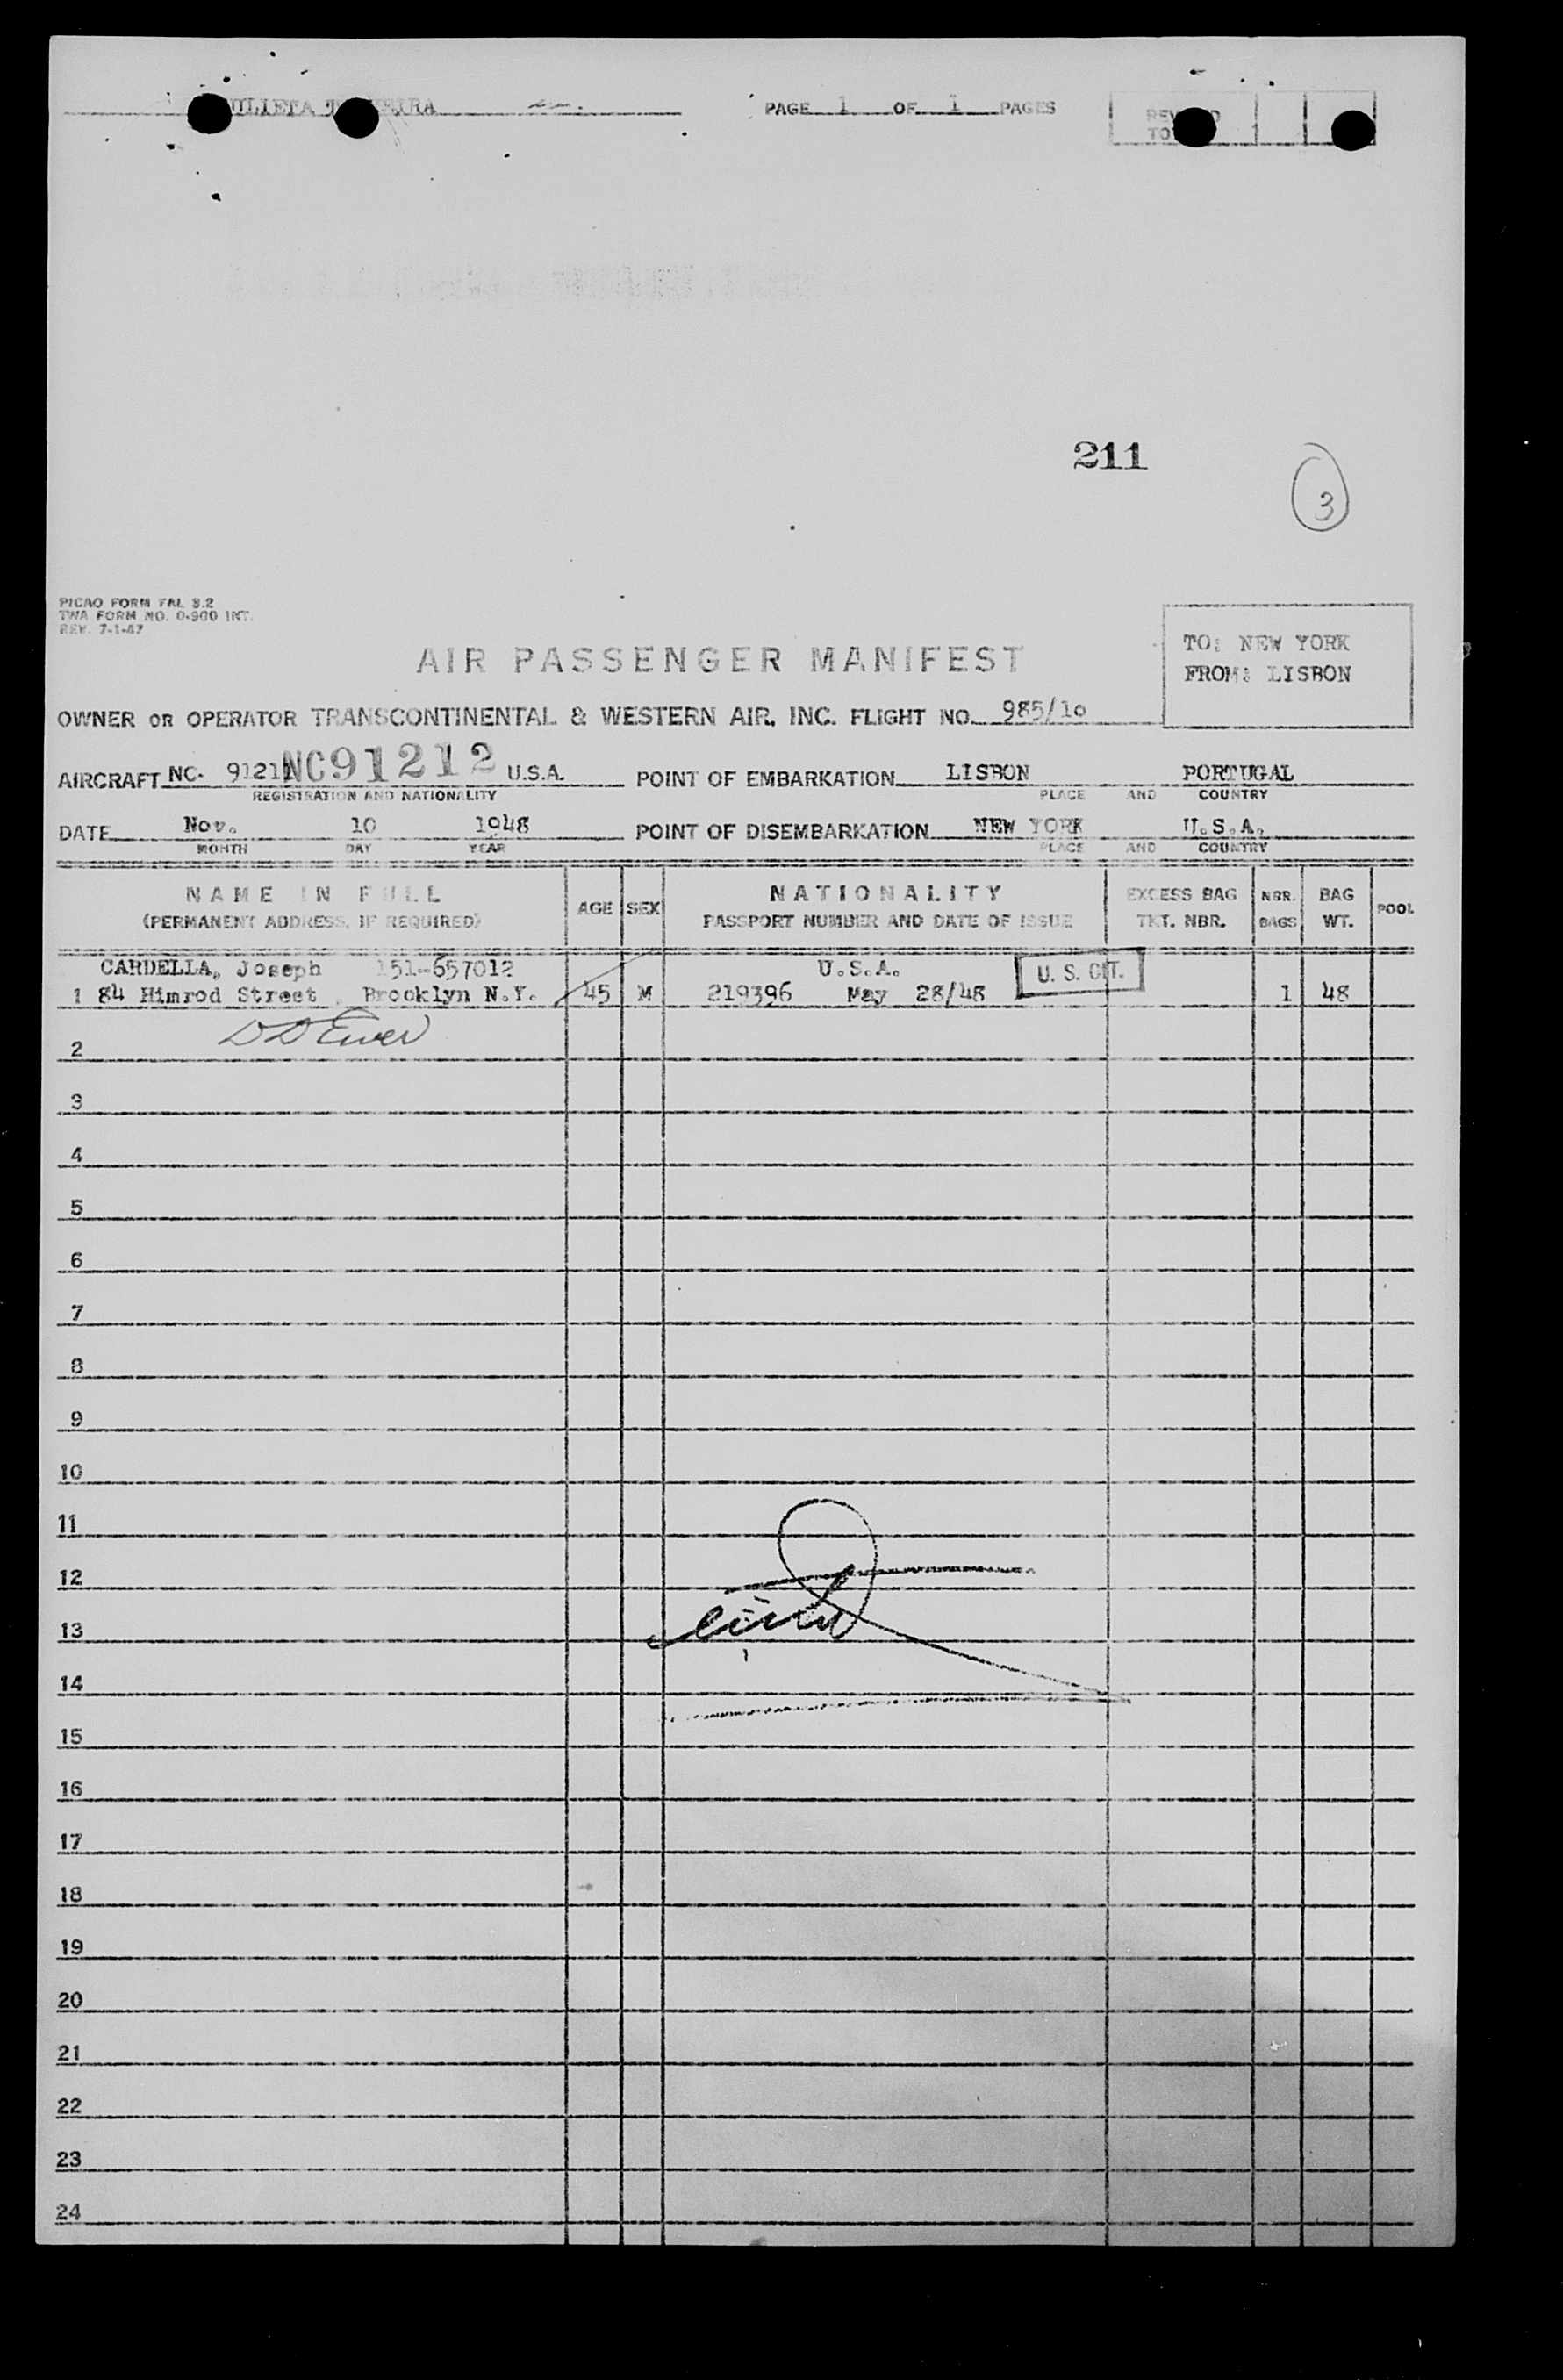 PAGE 1 OF 1 PAGES
211
3
PICAO FORM FAL S.2
TWA FORM NO. 0-900 INT.
REV. 7-1-47
AIR PASSENGER MANIFEST
TO: NEW YORK
FROM: LISBON
OWNER OR OPERATOR TRANSCONTINENTAL & WESTERN AIR, INC. FLIGHT NO. 985/10
AIRCRAFT NC. NC91212 U.S.A. POINT OF EMBARKATION LISBON PORTUGAL
REGISTRATION AND NATIONALITY PLACE AND COUNTRY
DATE Nov. 10 1948 POINT OF DISEMBARKATION NEW YORK U.S.A.
MONTH DAY YEAR PLACE AND COUNTRY
NAME IN FULL AGE SEX NATIONALITY EXCESS BAG NBR. BAG POOL
(PERMANENT ADDRESS, IF REQUIRED) PASSPORT NUMBER AND DATE OF ISSUE TKT. NBR. BAGS WT.
CARDELLA, Joseph 151-657012 U.S.A. U. S. CIT.
1 84 Himrod Street, Brooklyn N.Y. 45 M 219396 May 28/48 1 48
2
3
4
5
6
7
8
9
10
11
12
13
14
15
16
17
18
19
20
21
22
23
24